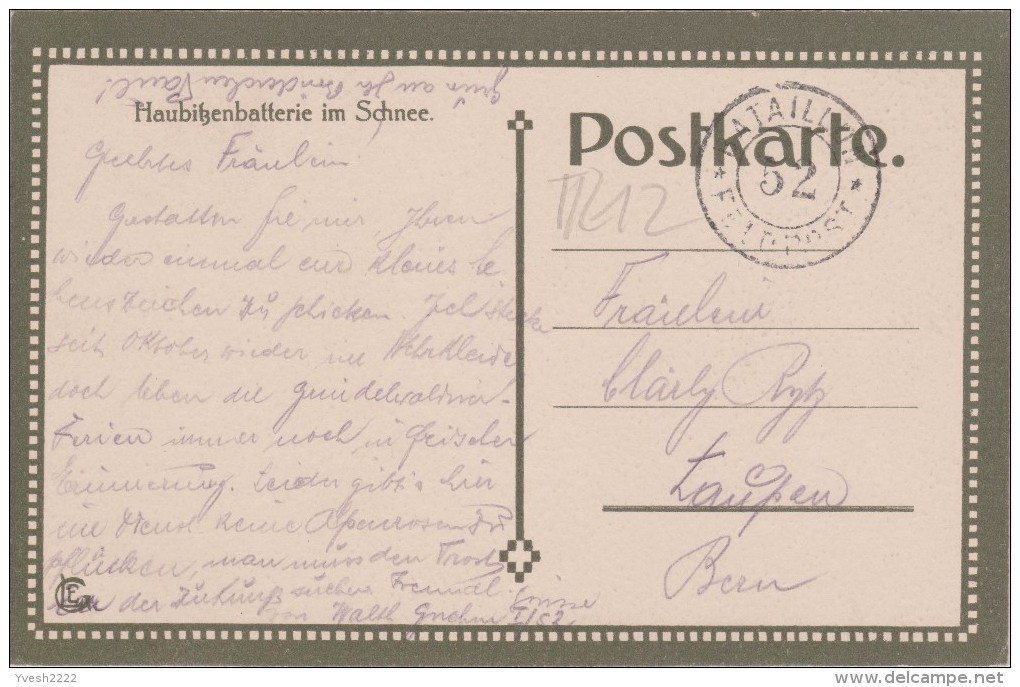 Gruss an Ihr Brüderchen Paul!
Haubitzenbatterie im Schnee.
Postkarte.
BATAILLON
52
FELDPOST
Geehrtes Fräulein
Gestatten Sie mir, Ihnen
wieder einmal ein kleines Le
benszeichen zu schicken. Ich stecke
seit Oktober wieder im Wehrkleide
doch leben die Grindelwaldner-
Ferien immer noch in frischer
Erinnerung. Leider gibt's hier
im Dienst keine Alpenrosen zu
pflücken, man muss den Trost
in der Zukunft suchen. Freundl.
von Walth I/52
Grüsse
Fräulein
Clärly Rytz
Laupen
Bern
Yvesh2222